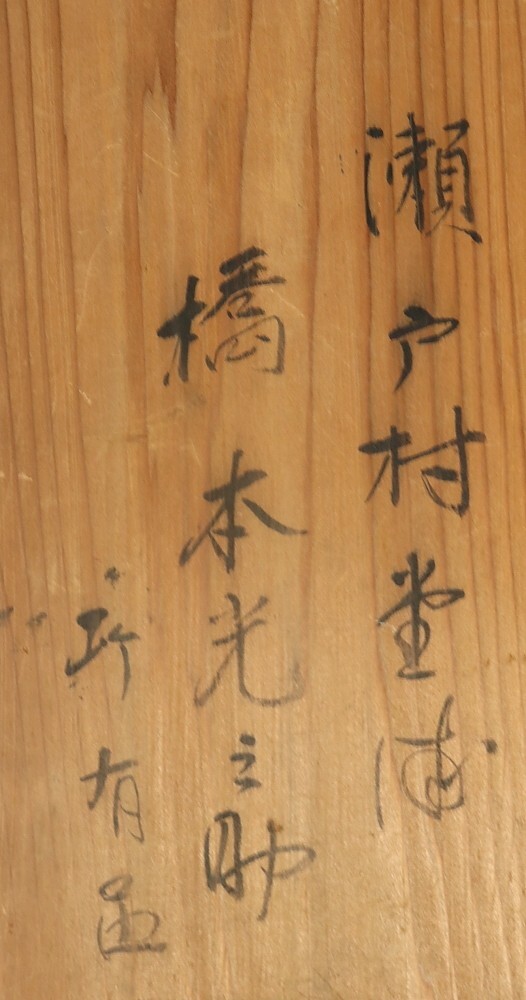 瀬戸村堂浦
橋本光之助
所有品